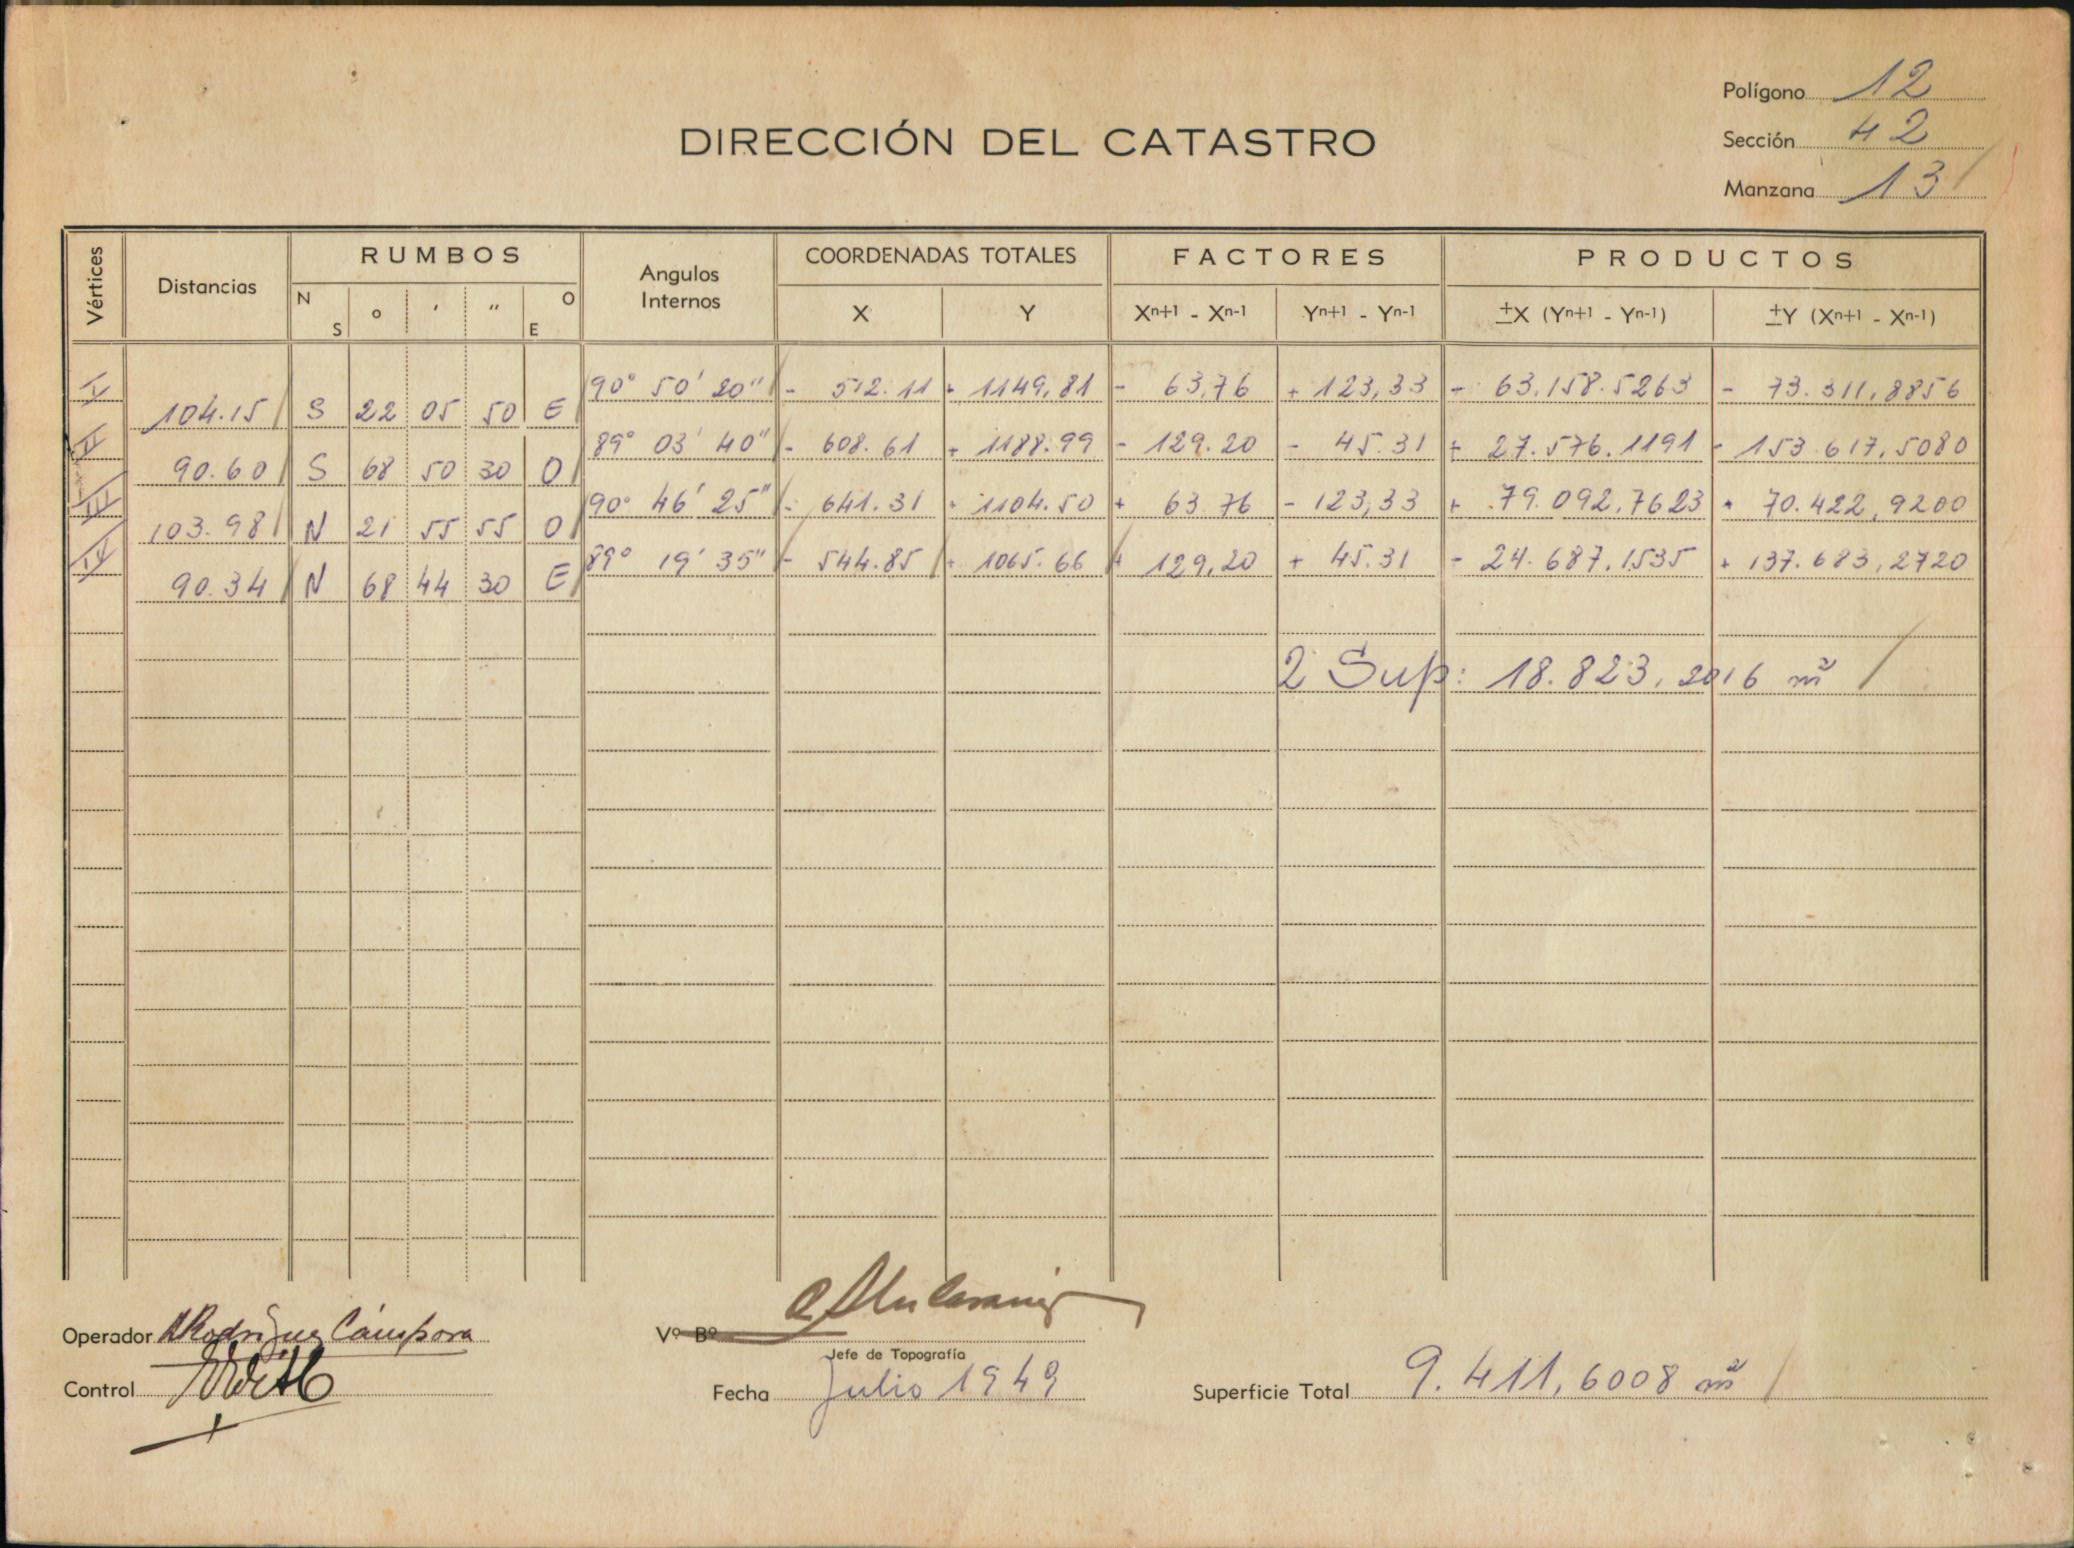 Polígono 12
DIRECCIÓN DEL CATASTRO
Sección 42
Manzana 13
Vértices Distancias RUMBOS Angulos Internos COORDENADAS TOTALES FACTORES PRODUCTOS
N S ° ' " O E X Y Xⁿ⁺¹ - Xⁿ⁻¹ Yⁿ⁺¹ - Yⁿ⁻¹ ±X (Yⁿ⁺¹ - Yⁿ⁻¹) ±Y (Xⁿ⁺¹ - Xⁿ⁻¹)
I 90° 50' 20" - 512.11 + 1149,81 - 63,76 + 123,33 - 63.158.5263 - 73.311,8856
104.15 S 22 05 50 E
II 89° 03' 40" - 608.61 + 1188.99 - 129.20 - 45.31 + 27.576.1191 - 153.617,5080
90.60 S 68 50 30 O
III 90° 46' 25" - 641.31 + 1104.50 + 63.76 - 123,33 + 79.092,7623 + 70.422,9200
103.98 N 21 55 55 O
IV 89° 19' 35" - 544.85 + 1065.66 + 129,20 + 45.31 - 24.687,1535 + 137.683,2720
90.34 N 68 44 30 E
2 Sup: 18.823,2016 m²
Operador ARodríguez Cámpora Vº Bº
Jefe de Topografía
Control Fecha Julio 1949 Superficie Total 9.411,6008 m²